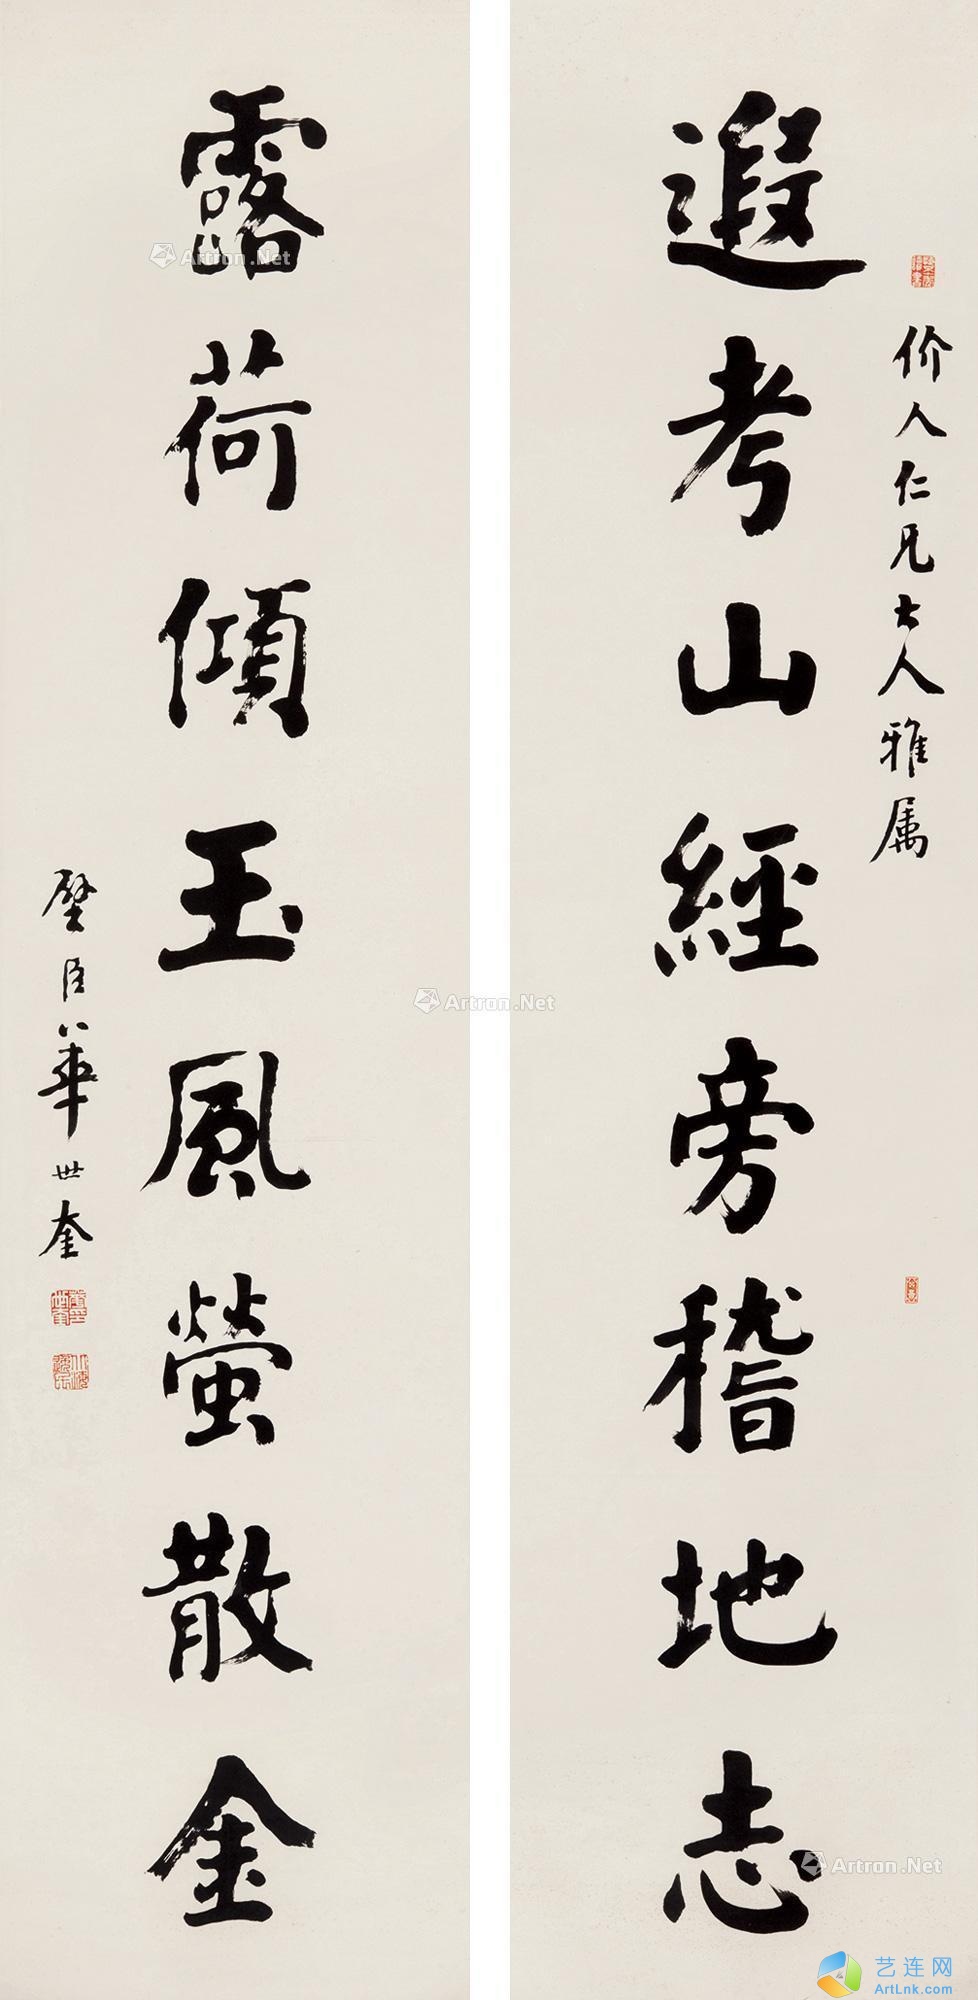 价人仁兄大人雅属
遐考山經旁稽地志
露荷傾玉風螢散金
璧臣華世奎
Artron.Net
Artron.Net
Artron.Net
艺连网
ArtLnk.com